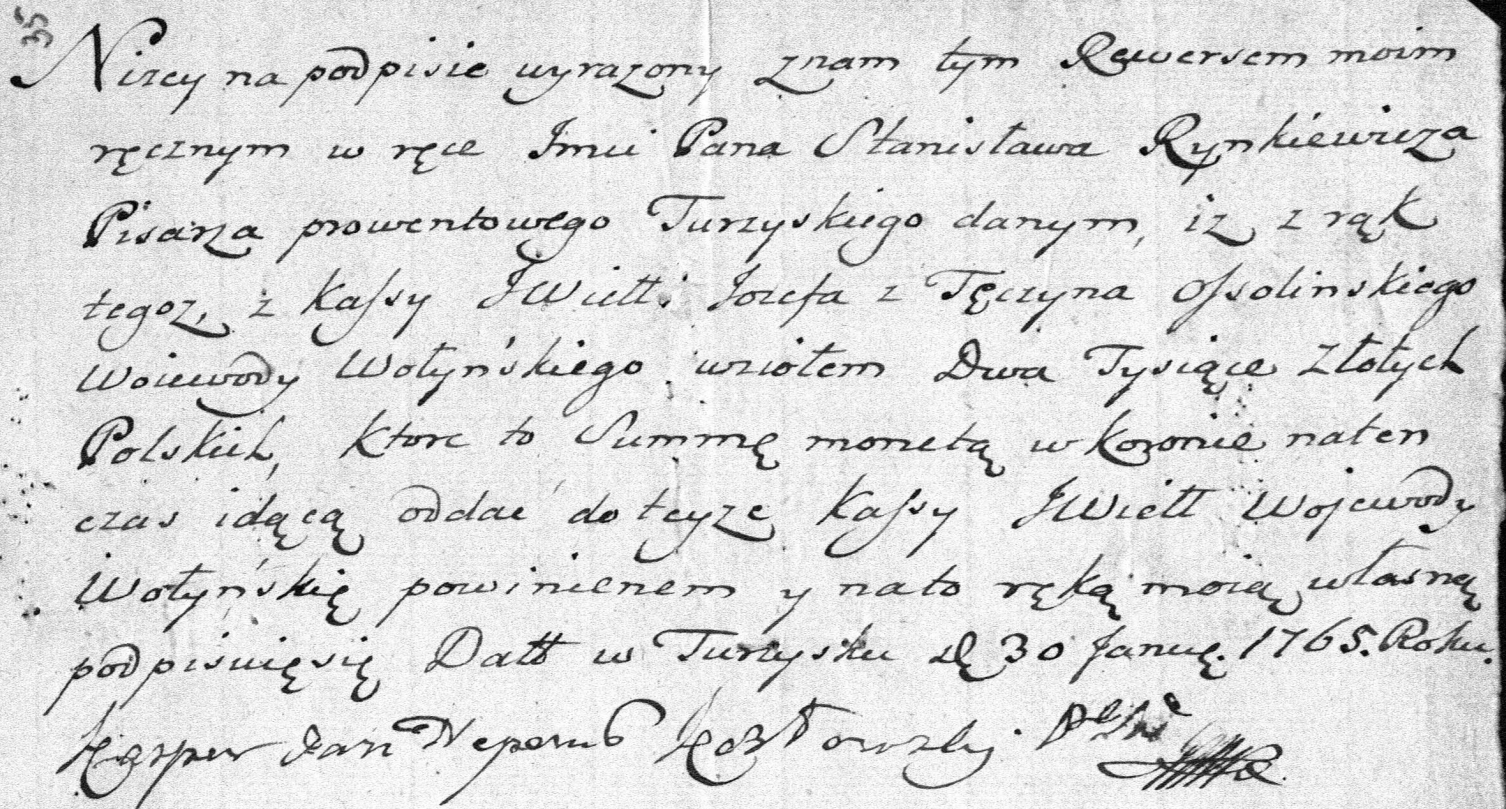 35
Nizey na podpisie wyrazony znam tym Rewersem moim
ręcznym w ręce Jmci Pana Stanisława Rynkiewicza
Pisarza prowentowego Turzyskiego danym, iz z rąk
tegoz, z Kassy JWiełł: Jozefa z Tęczyna Ossolinskiego
Woiewody Wołyńskiego wziołem Dwa Tysiące Złotych
Polskich, ktore to Summę monetą w Koronie naten
czas idącą oddać do teyze Kassy JWiełł Wojewody
Wołyńskię powinienem y nato ręką moią własną
podpisuięsię Datt w Turzysku dę 30 Januę. 1765. Roku.
Kasper Jan Nepomu Kozłowsky